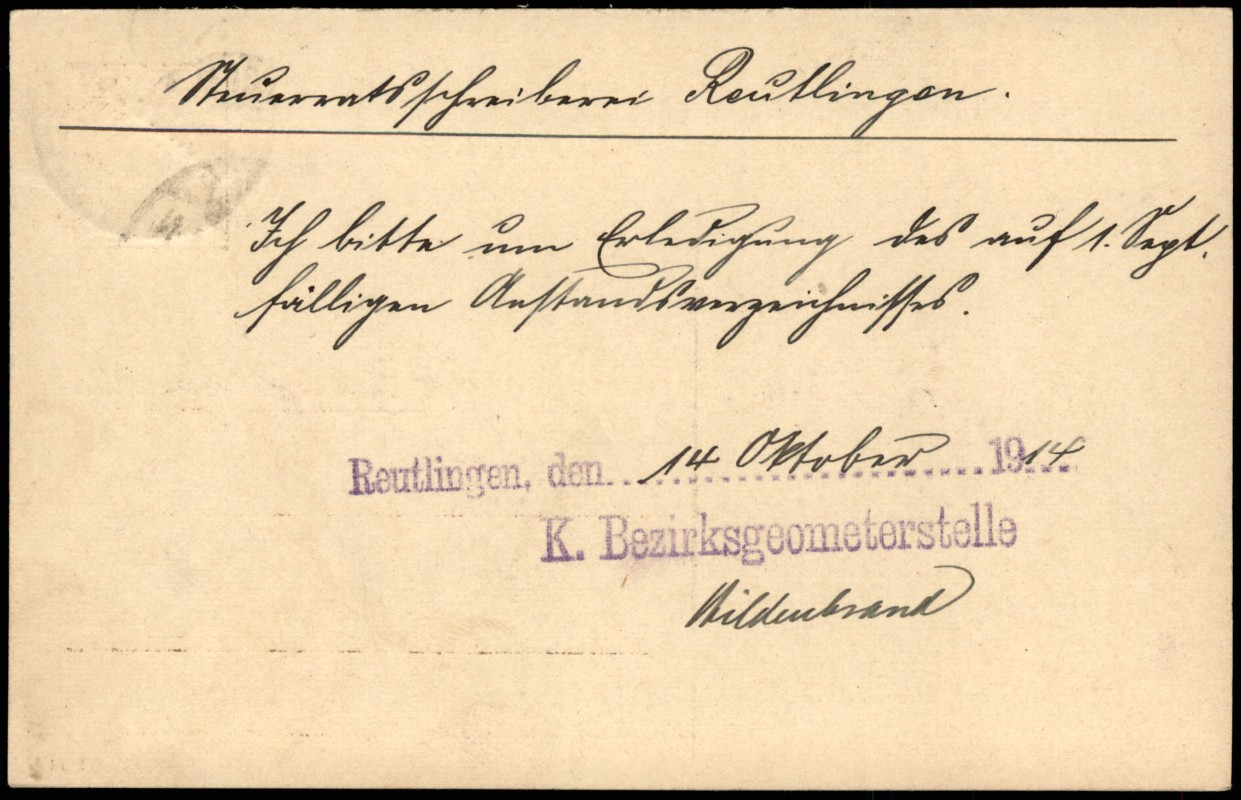 Steuerratsschreiberei Reutlingen.
Ich bitte um Erledigung des auf 1. Sept.
fälligen Anstandsverzeichnisses.
Reutlingen, den 14 Oktober 1914
K. Bezirksgeometerstelle
Hildenbrand